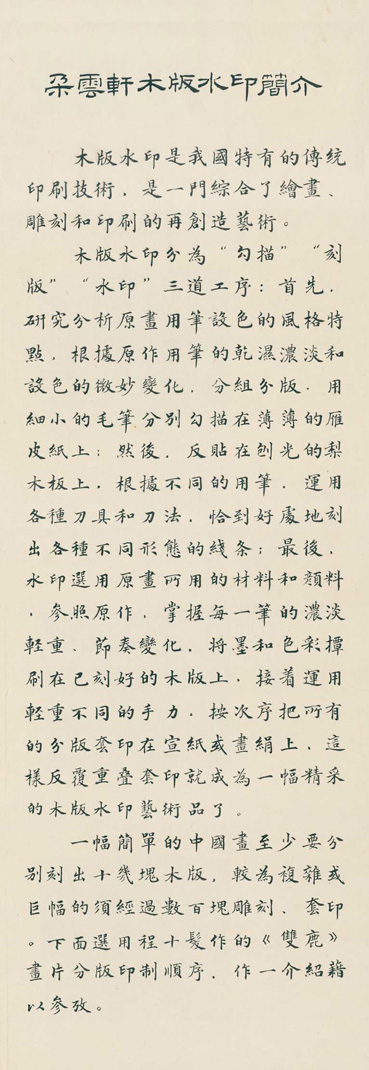 朵雲軒木版水印簡介
木版水印是我國特有的傳統
印刷技術，是一門綜合了繪畫、
雕刻和印刷的再創造藝術。
木版水印分為“勾描”“刻
版”“水印”三道工序：首先，
研究分析原畫用筆設色的風格特
點，根據原作用筆的乾濕濃淡和
設色的微妙變化，分組分版，用
細小的毛筆分別勾描在薄薄的雁
皮紙上；然後，反貼在刨光的梨
木板上，根據不同的用筆，運用
各種刀具和刀法，恰到好處地刻
出各種不同形態的綫条；最後，
水印選用原畫所用的材料和顔料
，參照原作，掌握每一筆的濃淡
輕重、節奏變化，將墨和色彩撢
刷在已刻好的木版上，接着運用
輕重不同的手力，按次序把所有
的分版套印在宣紙或畫絹上，這
樣反覆重叠套印就成為一幅精采
的木版水印藝術品了。
一幅簡單的中國畫至少要分
别刻出十幾塊木版，較為複雜或
巨幅的須經過數百塊雕刻、套印
。下面選用程十髮作的《雙鹿》
畫片分版印制順序，作一介紹藉
以參攷。